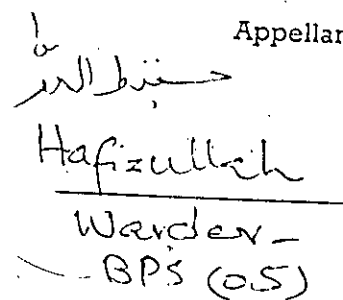 Appellan
حفیظ اللہ
Hafizullah
Warder-
BPS (05)